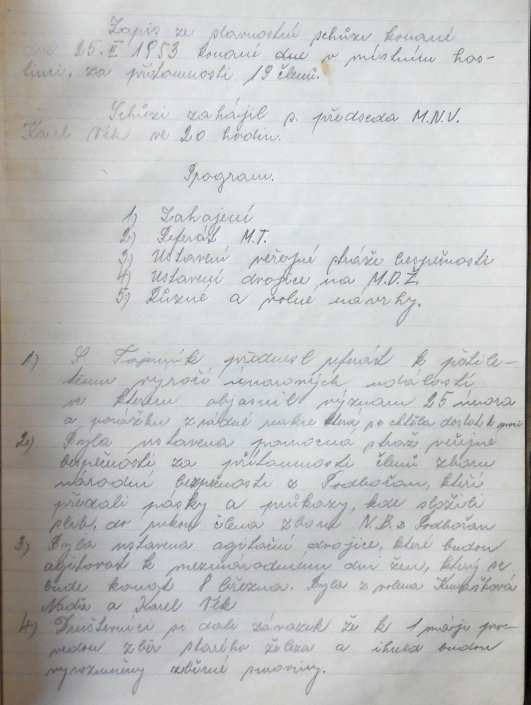 Zápis ze slavnostní schůze konané
dne 25. II 1953 konané dne v místním hos-
tinci, za přítomnosti 19 členů.
Schůzi zahájil s. předseda M.N.V.
Karel Věk ve 20 hodin.
Program.
1) Zahájení
2) Referát M.T.
3) Ustavení veřejné stráže bezpečnosti
4) Ustavení dvojice na M.D.Ž.
5) Různé a volné návrhy.
1) S Tajemník přednesl referát k pětile-
tému výročí únorových událostí
ve kterém objasnil význam 25 února
a porážku zrádné která se chtěla dostat k moci
2) Byla ustavena pomocná stráž veřejné
bezpečnosti za přítomnosti členů sboru
národní bezpečnosti z Podbořan, kteří
předali pásky a průkazy, kde složili
slib, do rukou člena sboru N.B. z Podbořan
3) Byla ustavena agitační dvojice, které budou
agitovat k mezinárodnímu dni žen, který se
bude konat 8 března. Byla zvolena
Naďa a Karel Věk
4) Družstevníci si dali závazek že k 1 máji pro-
vedou sběr starého železa a ihned budou
vyrozuměny sběrné suroviny.